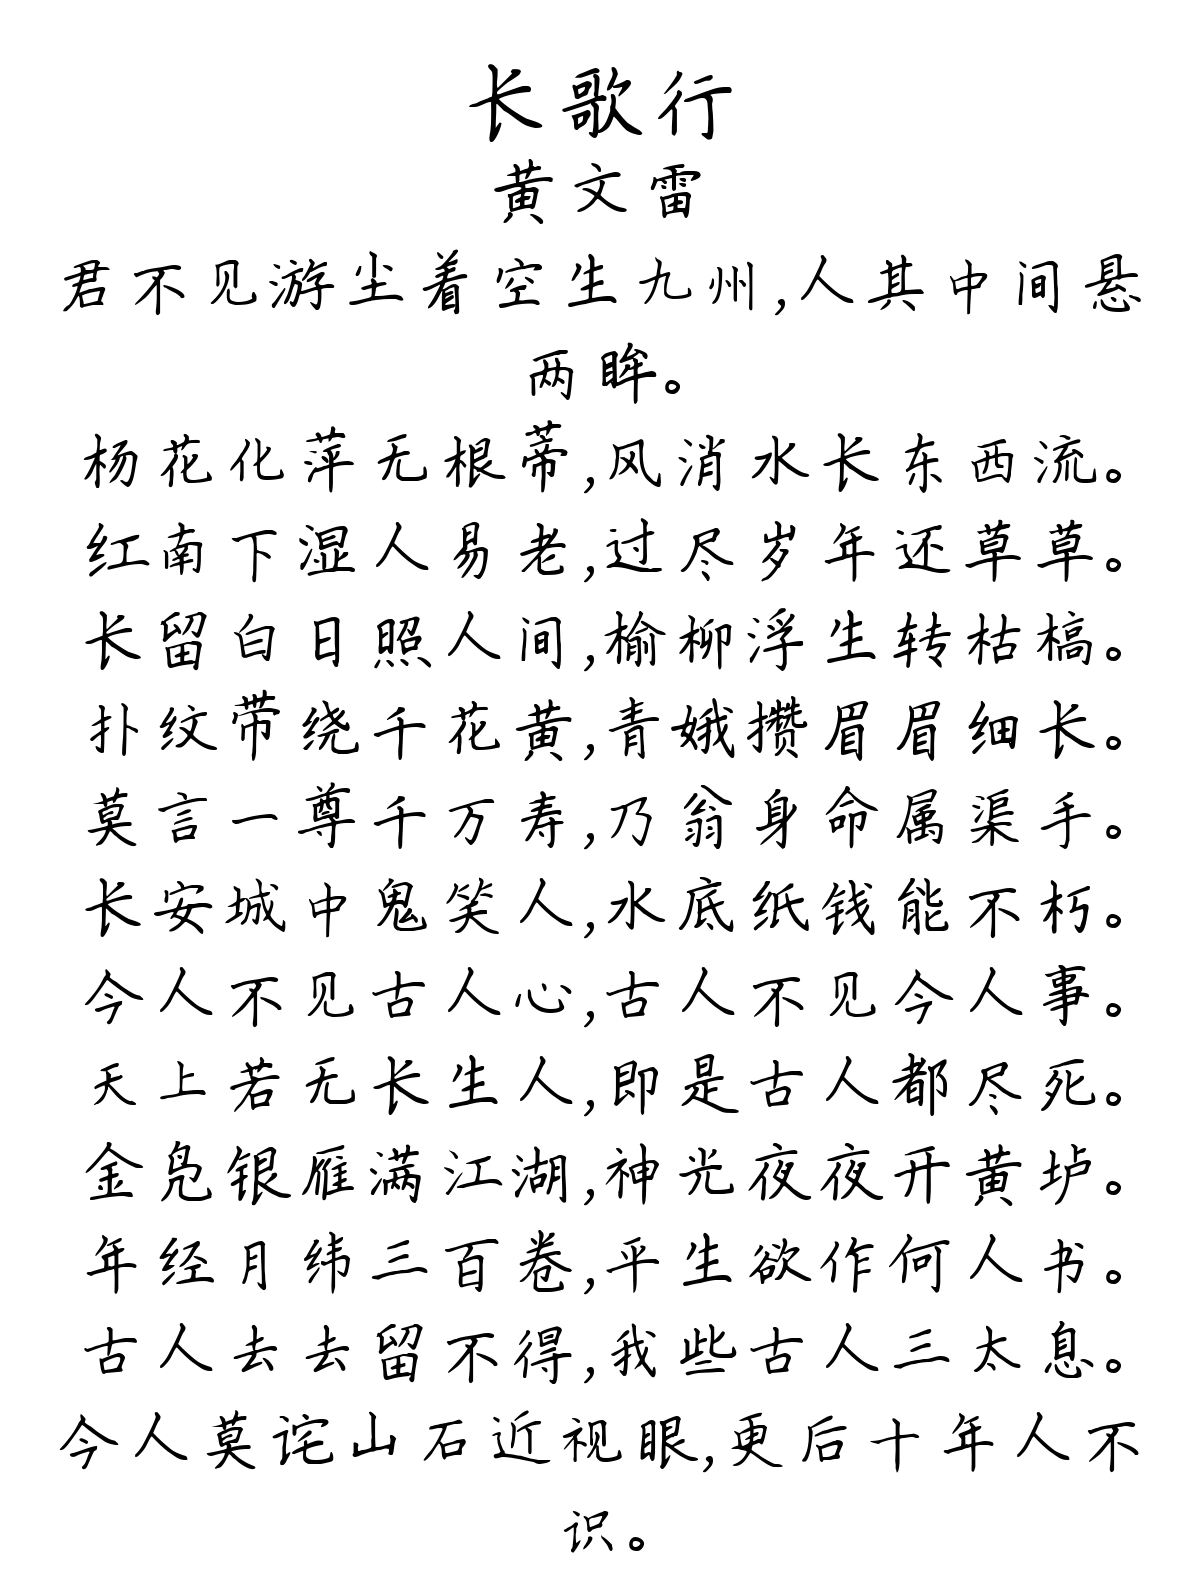 长歌行
黄文雷
君不见游尘着空生九州,人其中间悬
两眸。
杨花化萍无根蒂,风消水长东西流。
红南下湿人易老,过尽岁年还草草。
长留白日照人间,榆柳浮生转枯槁。
扑纹带绕千花黄,青娥攒眉眉细长。
莫言一尊千万寿,乃翁身命属渠手。
长安城中鬼笑人,水底纸钱能不朽。
今人不见古人心,古人不见今人事。
天上若无长生人,即是古人都尽死。
金凫银雁满江湖,神光夜夜开黄垆。
年经月纬三百卷,平生欲作何人书。
古人去去留不得,我些古人三太息。
今人莫诧山石近视眼,更后十年人不
识。